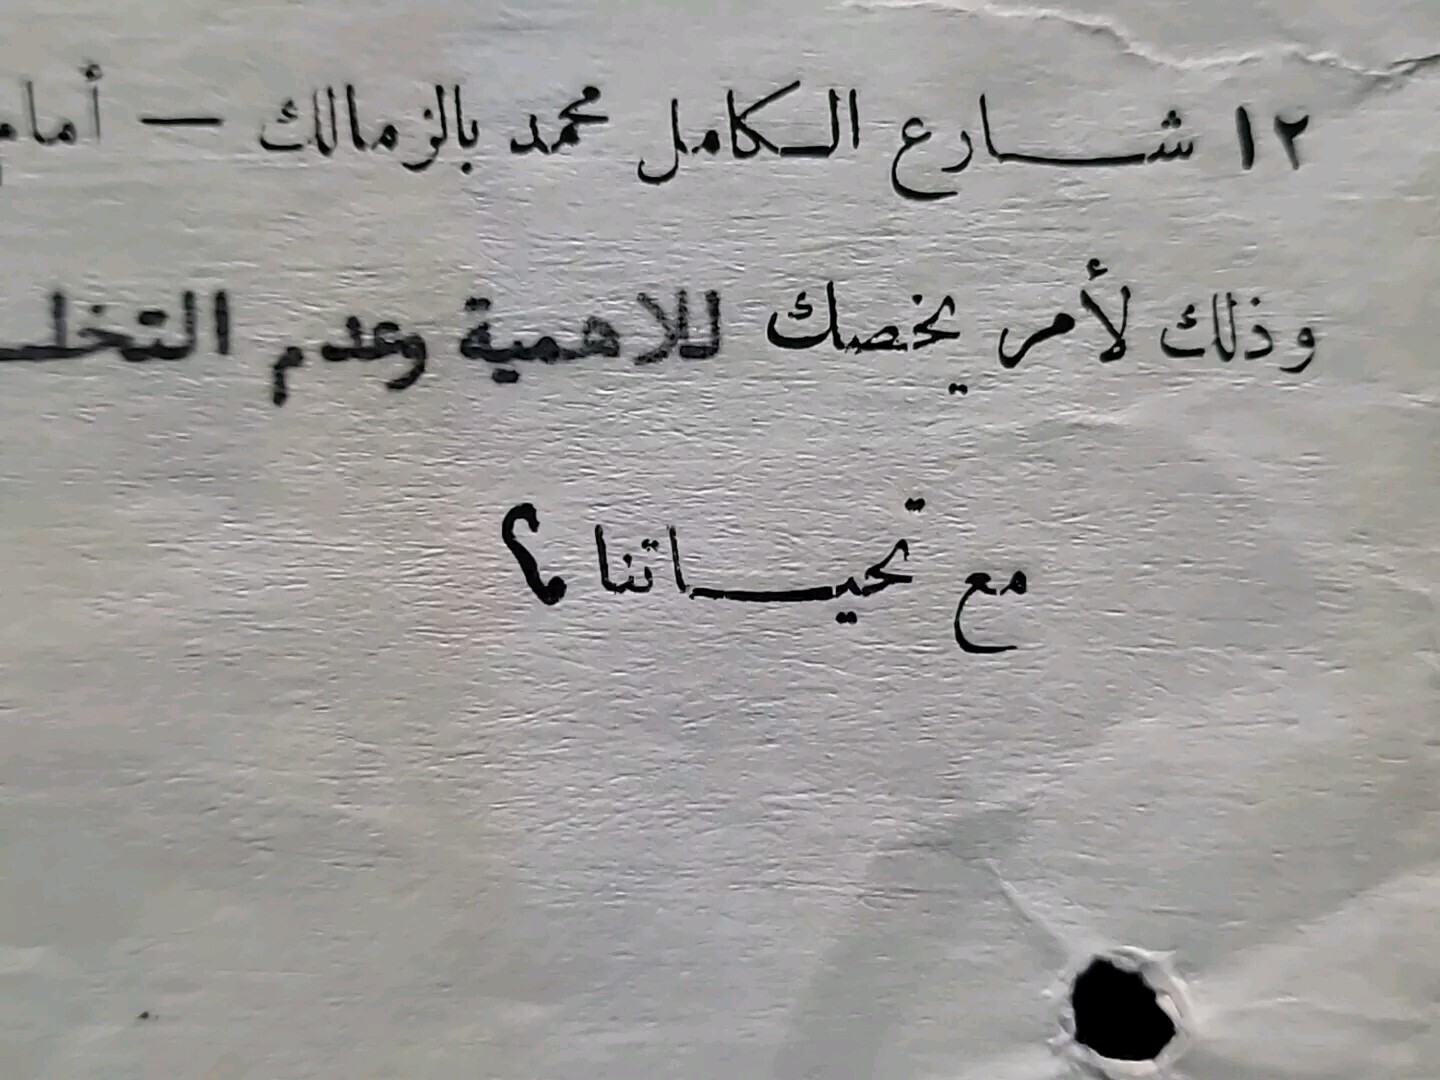 ١٢ شارع الكامل محمد بالزمالك — أمام
وذلك لأمر يخصك للاهمية وعدم
مع تحياتنا ؟